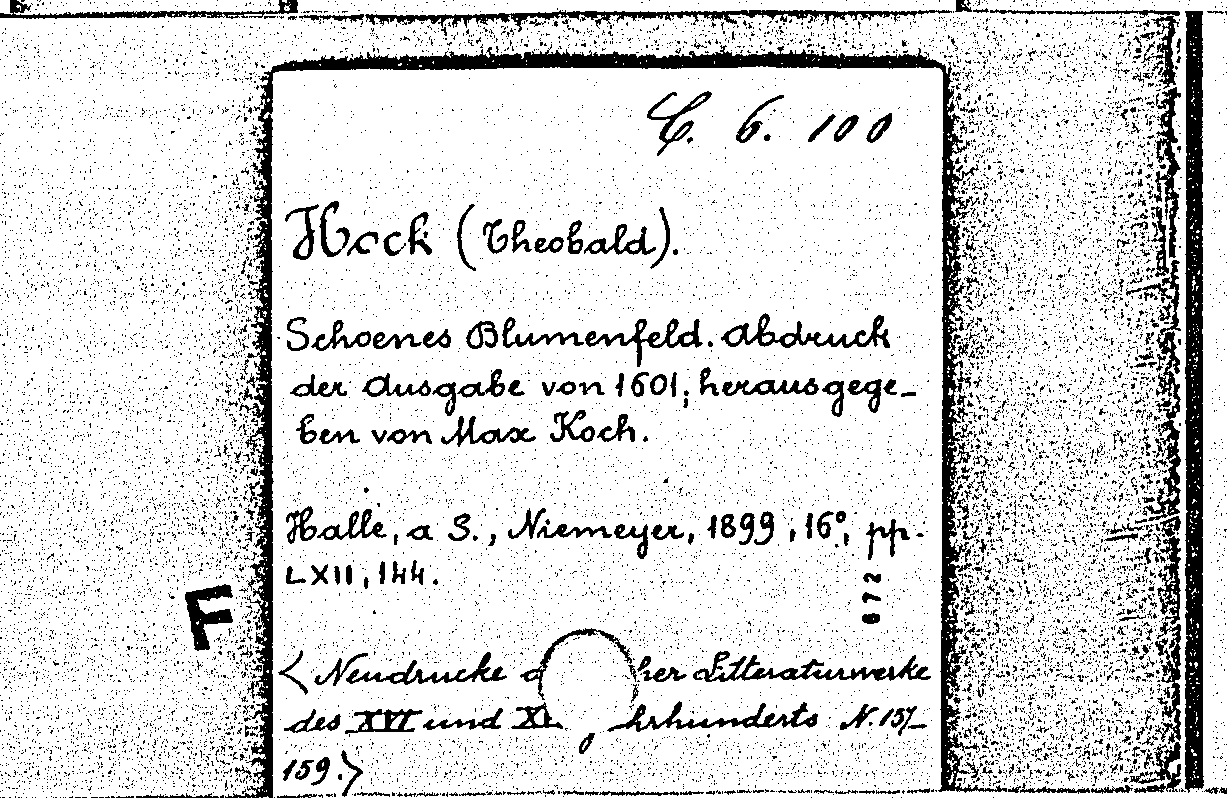 C. 6. 100
Hock (Theobald).
Schoenes Blumenfeld. Abdruck
der Ausgabe von 1601, herausgege-
ben von Max Koch.
Halle, a S., Niemeyer, 1899, 16°, pp.
LXII, 144.
672
F
<Neudrucke her Litteraturwerke
des XVI und hrhunderts N. 157-
159.>